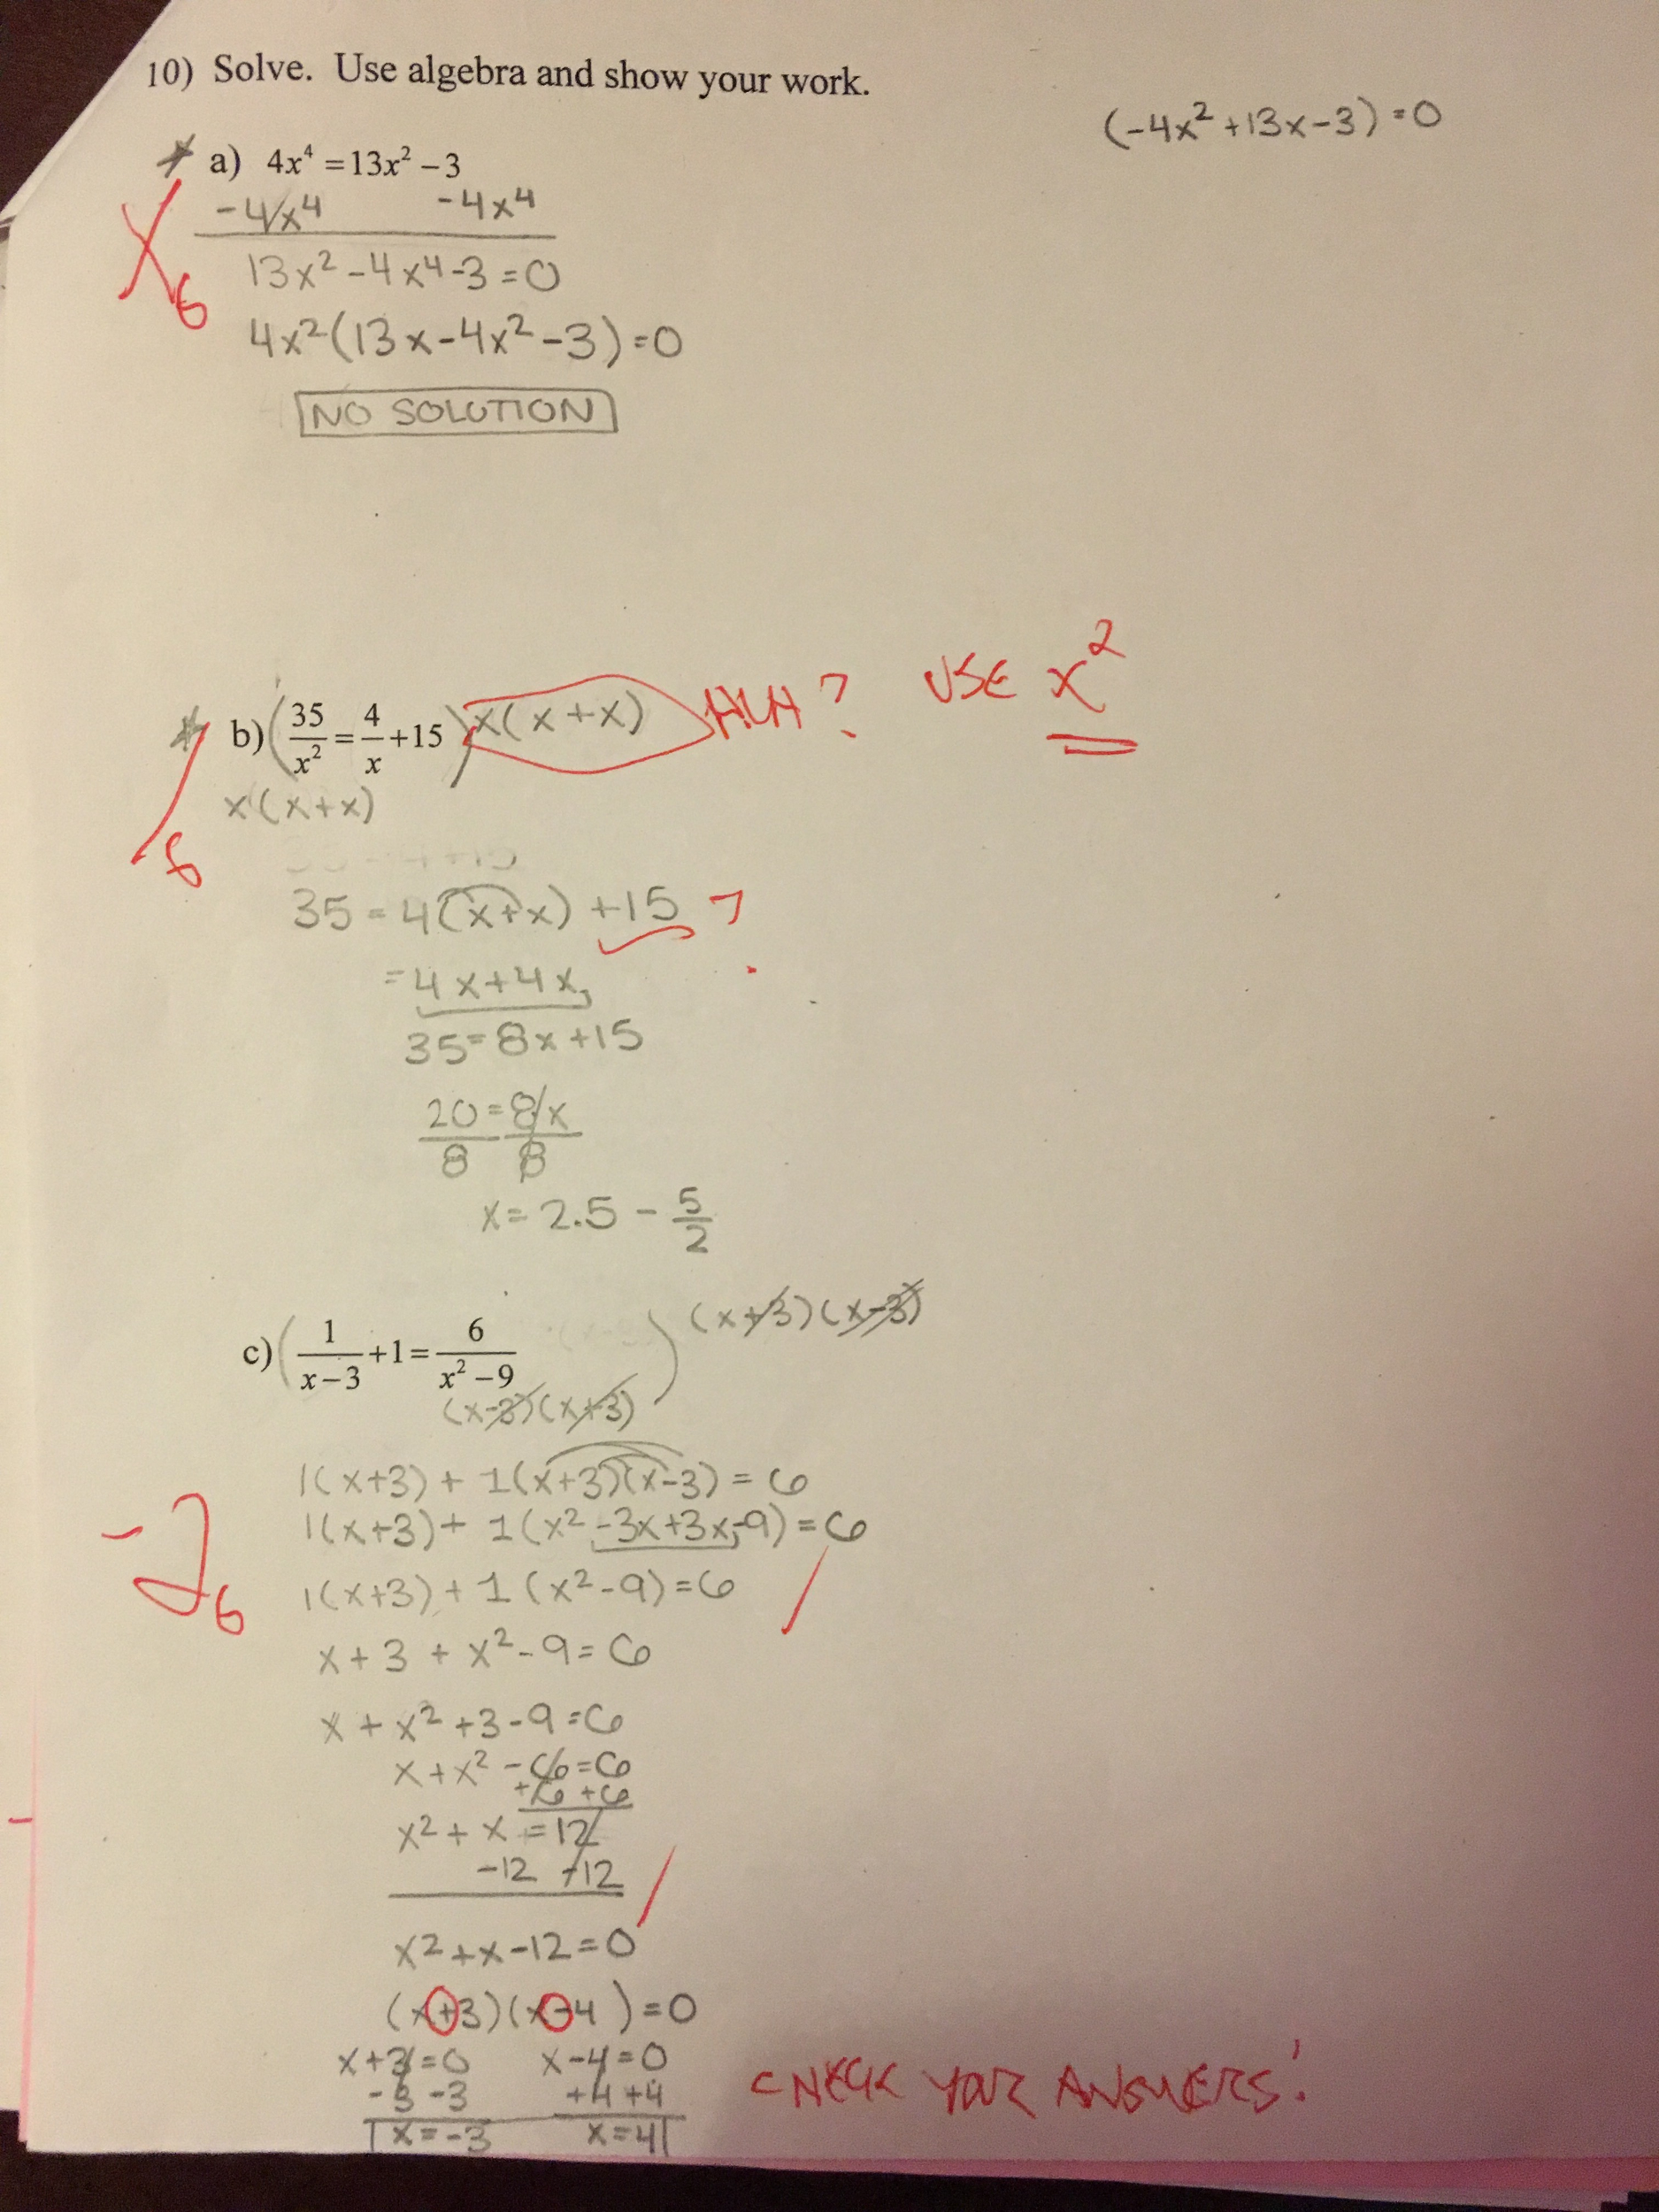 10) Solve. Use algebra and show your work.
(-4x² +13x-3) = 0
a) 4x⁴ = 13x² − 3
-4x⁴ -4x⁴
6
13x² -4x⁴-3 = 0
4x²(13x-4x²-3) = 0
NO SOLUTION
b) (35/x² = 4/x + 15) x(x+x) HUH? USE x²
x(x+x)
8
35 = 4(x+x) +15 ?
= 4x+4x
35 = 8x+15
20/8 = 8x/8
x = 2.5 - 5/2
c) (1/(x−3) + 1 = 6/(x² −9)) (x+3)(x-3)
(x-3)(x+3)
1(x+3) + 1(x+3)(x-3) = 6
1(x+3) + 1(x² -3x+3x-9) = 6
-2
6
1(x+3) + 1(x²-9) = 6
x+3 + x²-9 = 6
x + x² +3-9 = 6
x + x² -6 = 6
+6 +6
x² + x = 12
-12 -12
x² +x-12 = 0
(x+3)(x-4) = 0
x+3 = 0 x-4 = 0
-3 -3 +4 +4
x = -3 x = 4
CHECK YOUR ANSWERS!